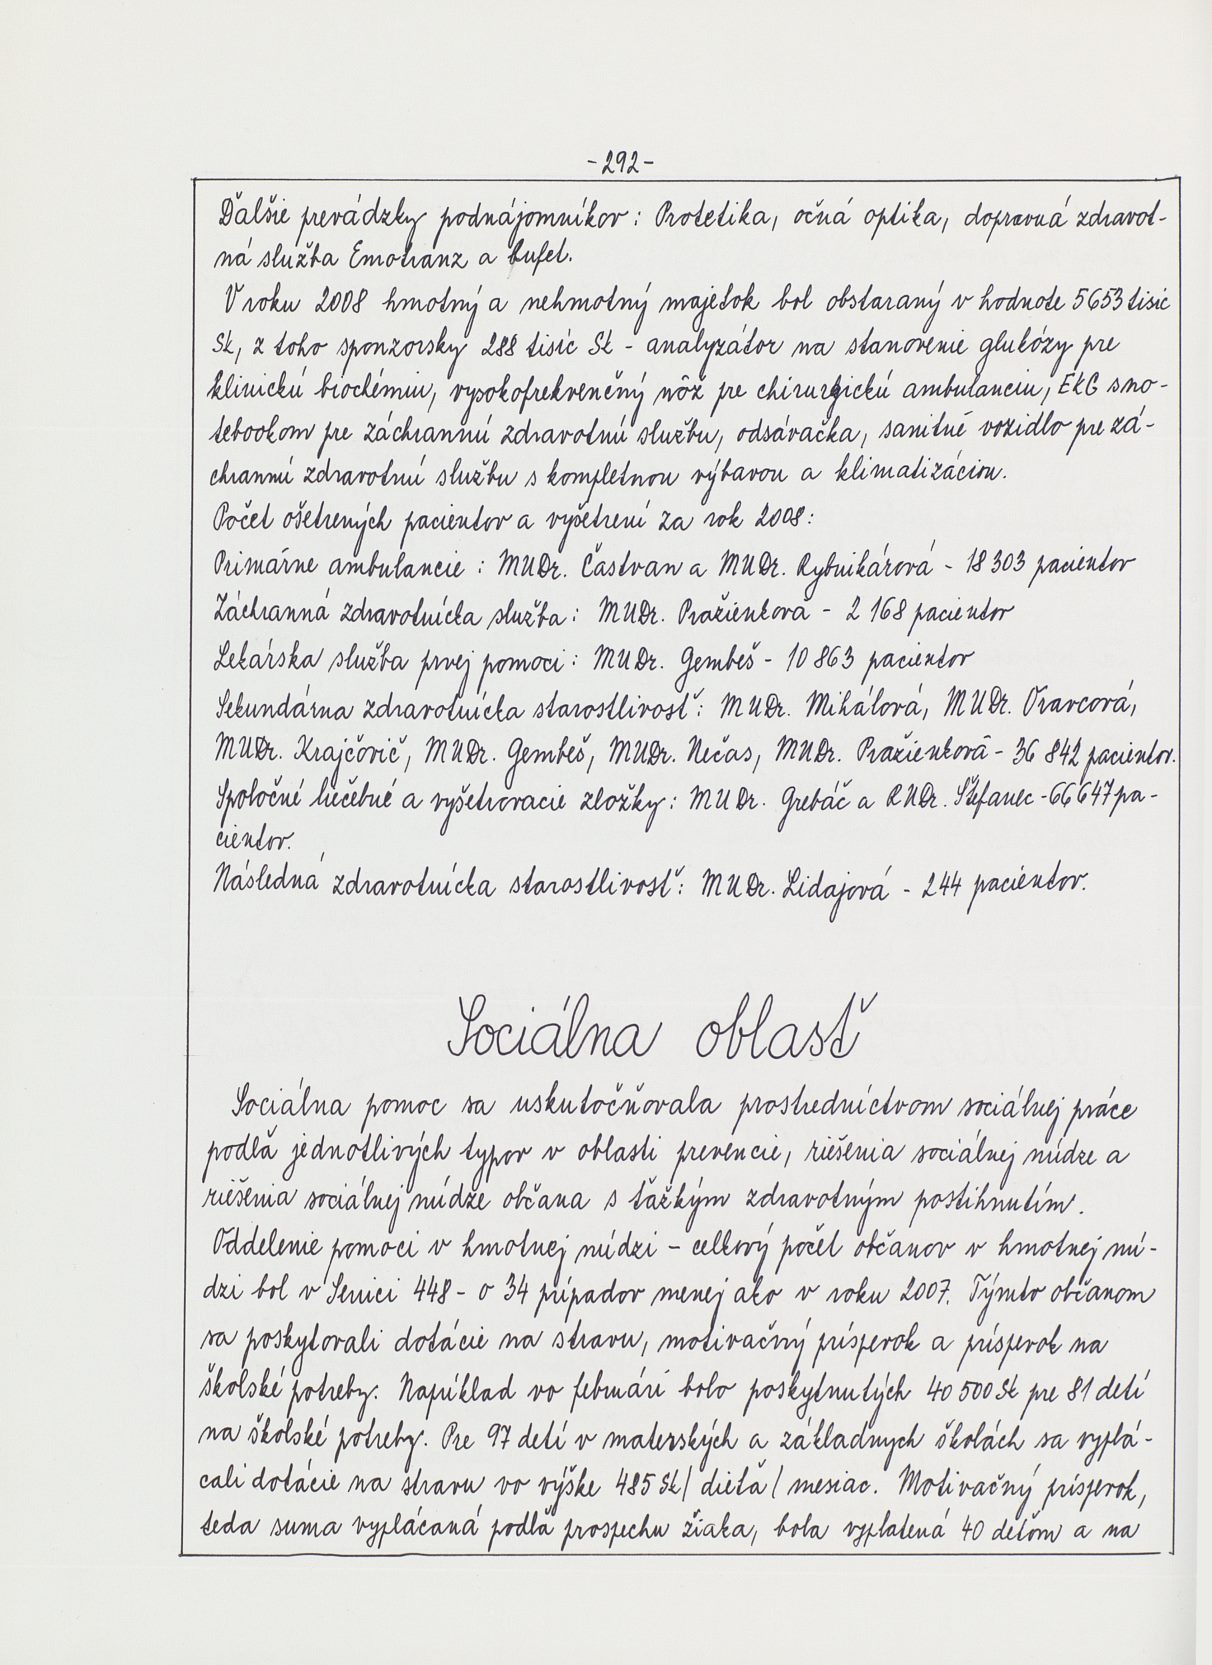 -292-
Ďalšie prevádzky podnájomníkov: Protetika, očná optika, dopravná zdravot-
ná služba Emotranz a bufet.
V roku 2008 hmotný a nehmotný majetok bol obstaraný v hodnote 5653 tisíc
Sk, z toho sponzorsky 288 tisíc Sk - analyzátor na stanovenie glukózy pre
klinickú biochémiu, vysokofrekvenčný nôž pre chirurgickú ambulanciu, EKG s no-
tebookom pre záchrannú zdravotnú službu, odsávačka, sanitné vozidlo pre zá-
chrannú zdravotnú službu s kompletnou výbavou a klimatizáciou.
Počet ošetrených pacientov a vyšetrení za rok 2008:
Primárne ambulancie: MUDr. Častvan a MUDr. Rybnikárová - 18 303 pacientov
Záchranná zdravotnícka služba: MUDr. Praženková - 2 168 pacientov
Lekárska služba prvej pomoci: MUDr. Gembeš - 10 863 pacientov
Sekundárna zdravotnícka starostlivosť: MUDr. Mihálová, MUDr. Vravcová,
MUDr. Krajčovič, MUDr. Gembeš, MUDr. Nečas, MUDr. Praženková - 36 842 pacientov.
Spoločné liečebné a vyšetrovacie zložky: MUDr. Grebáč a RNDr. Štefanec - 66 647 pa-
cientov.
Následná zdravotnícka starostlivosť: MUDr. Lidajová - 244 pacientov.
Sociálna oblasť
Sociálna pomoc sa uskutočňovala prostredníctvom sociálnej práce
podľa jednotlivých typov v oblasti prevencie, riešenia sociálnej núdze a
riešenia sociálnej núdze občana s ťažkým zdravotným postihnutím.
Oddelenie pomoci v hmotnej núdzi - celkový počet občanov v hmotnej nú-
dzi bol v Senici 448 - o 34 prípadov menej ako v roku 2007. Týmto občanom
sa poskytovali dotácie na stravu, motivačný príspevok a príspevok na
školské potreby. Napríklad vo februári bolo poskytnutých 40 500 Sk pre 81 detí
na školské potreby. Pre 97 detí v materských a základných školách sa vyplá-
cali dotácie na stravu vo výške 485 Sk/ dieťa/ mesiac. Motivačný príspevok,
teda suma vyplácaná podľa prospechu žiaka, bola vyplatená 40 deťom a na